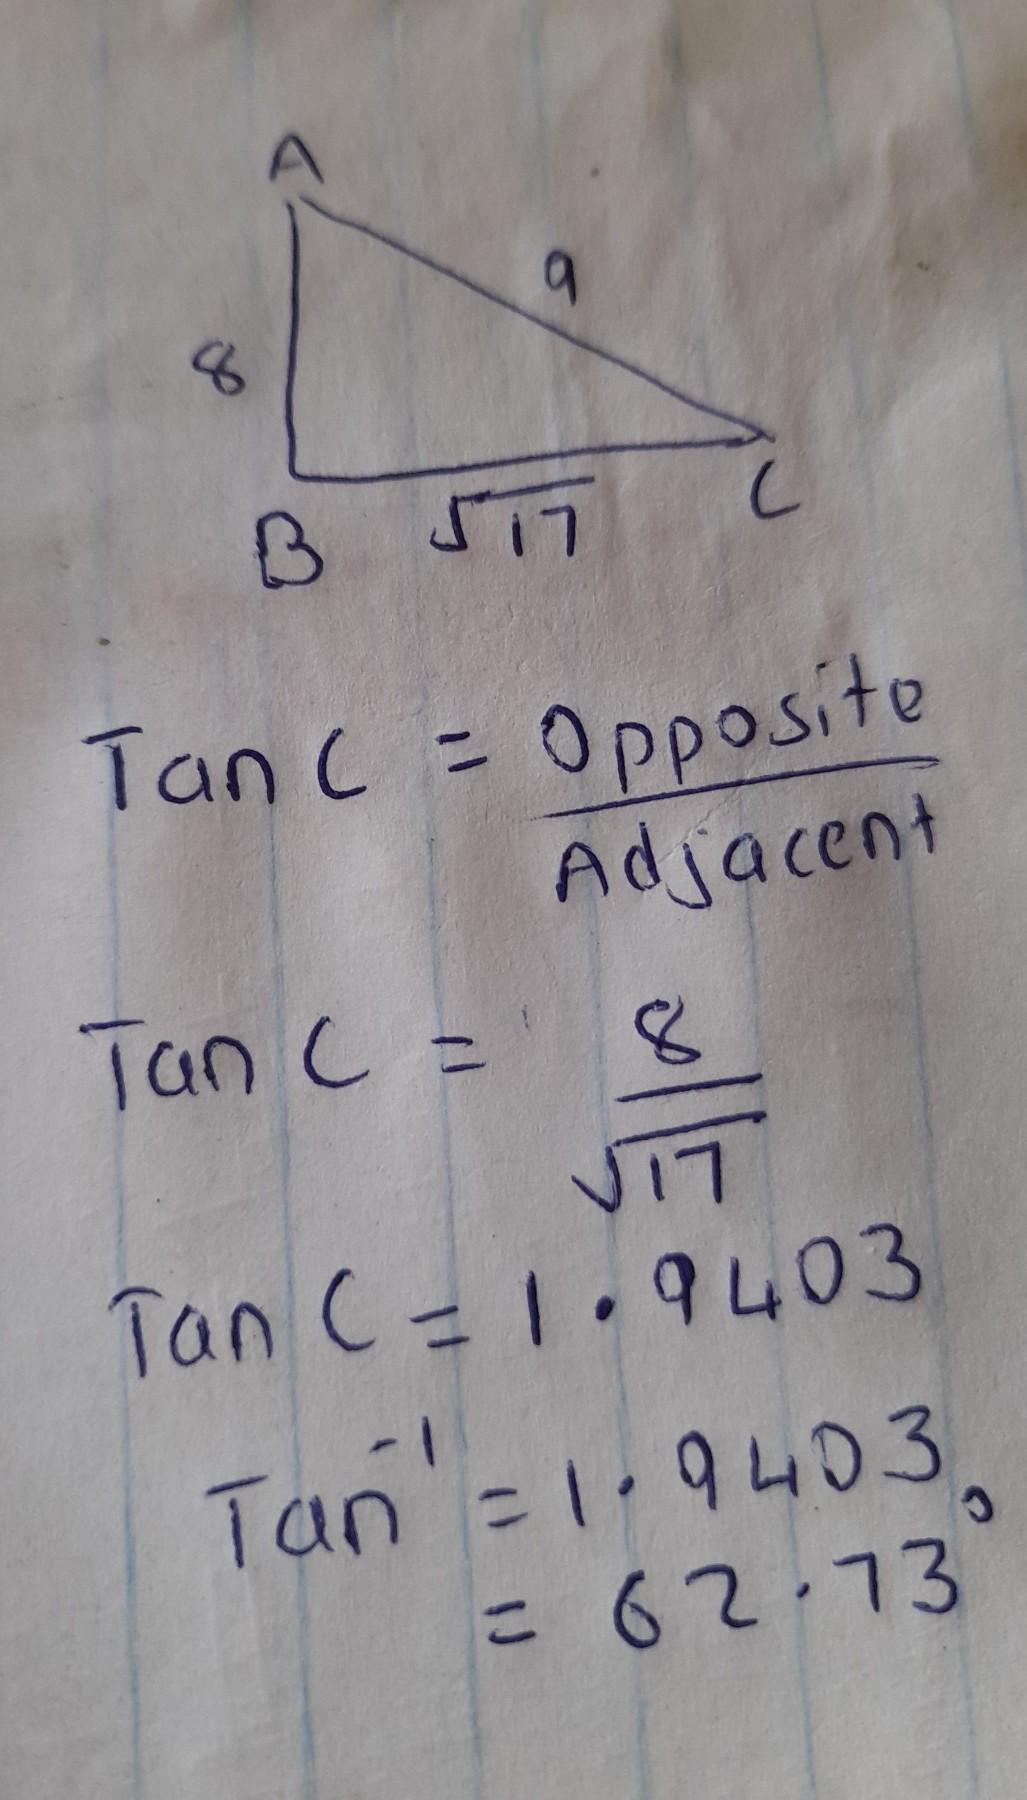 A
9
8
B
√17
C
Tan C = Opposite
Adjacent
Tan C = 8
√17
Tan C = 1.9403
Tan⁻¹ = 1.9403
= 62.73°